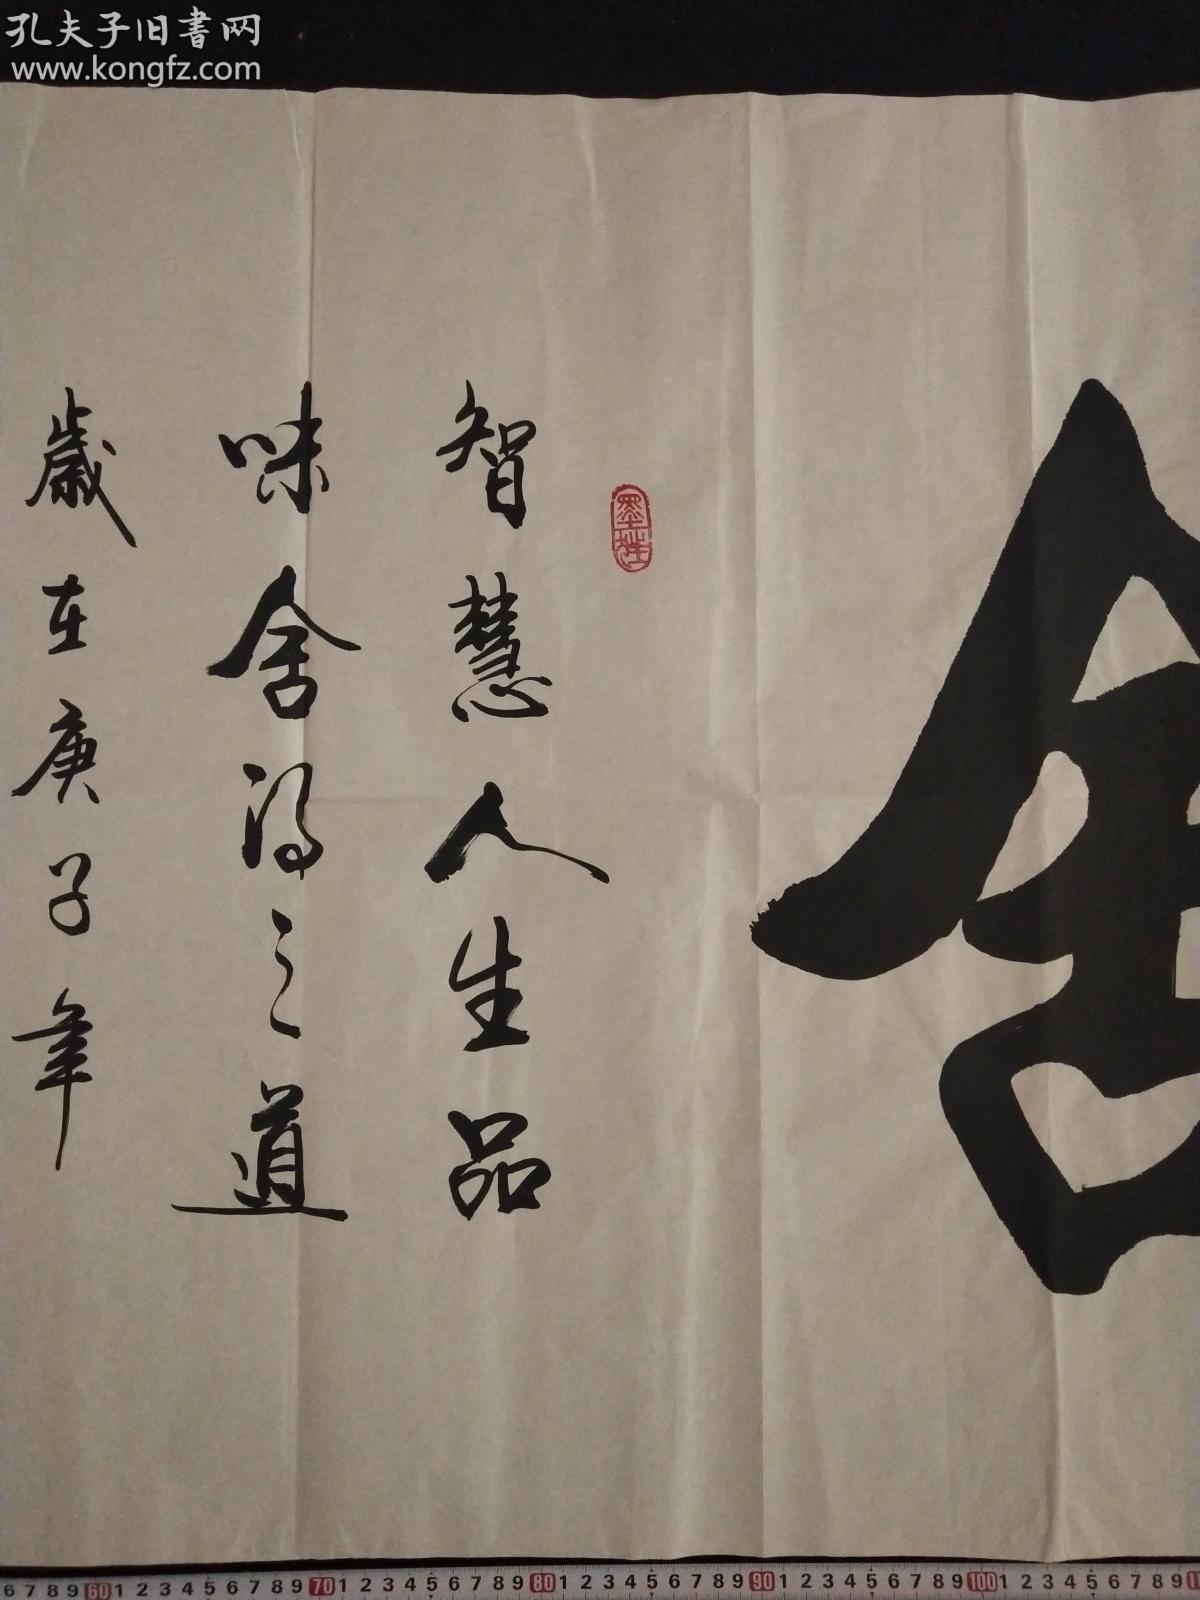 孔夫子旧書网
www.kongfz.com
舍
智慧人生品
味舍得之道
歲在庚子年
6 7 8 9 60 1 2 3 4 5 6 7 8 9 70 1 2 3 4 5 6 7 8 9 80 1 2 3 4 5 6 7 8 9 90 1 2 3 4 5 6 7 8 9 100 1 2 3 4 5 6 7 8 9